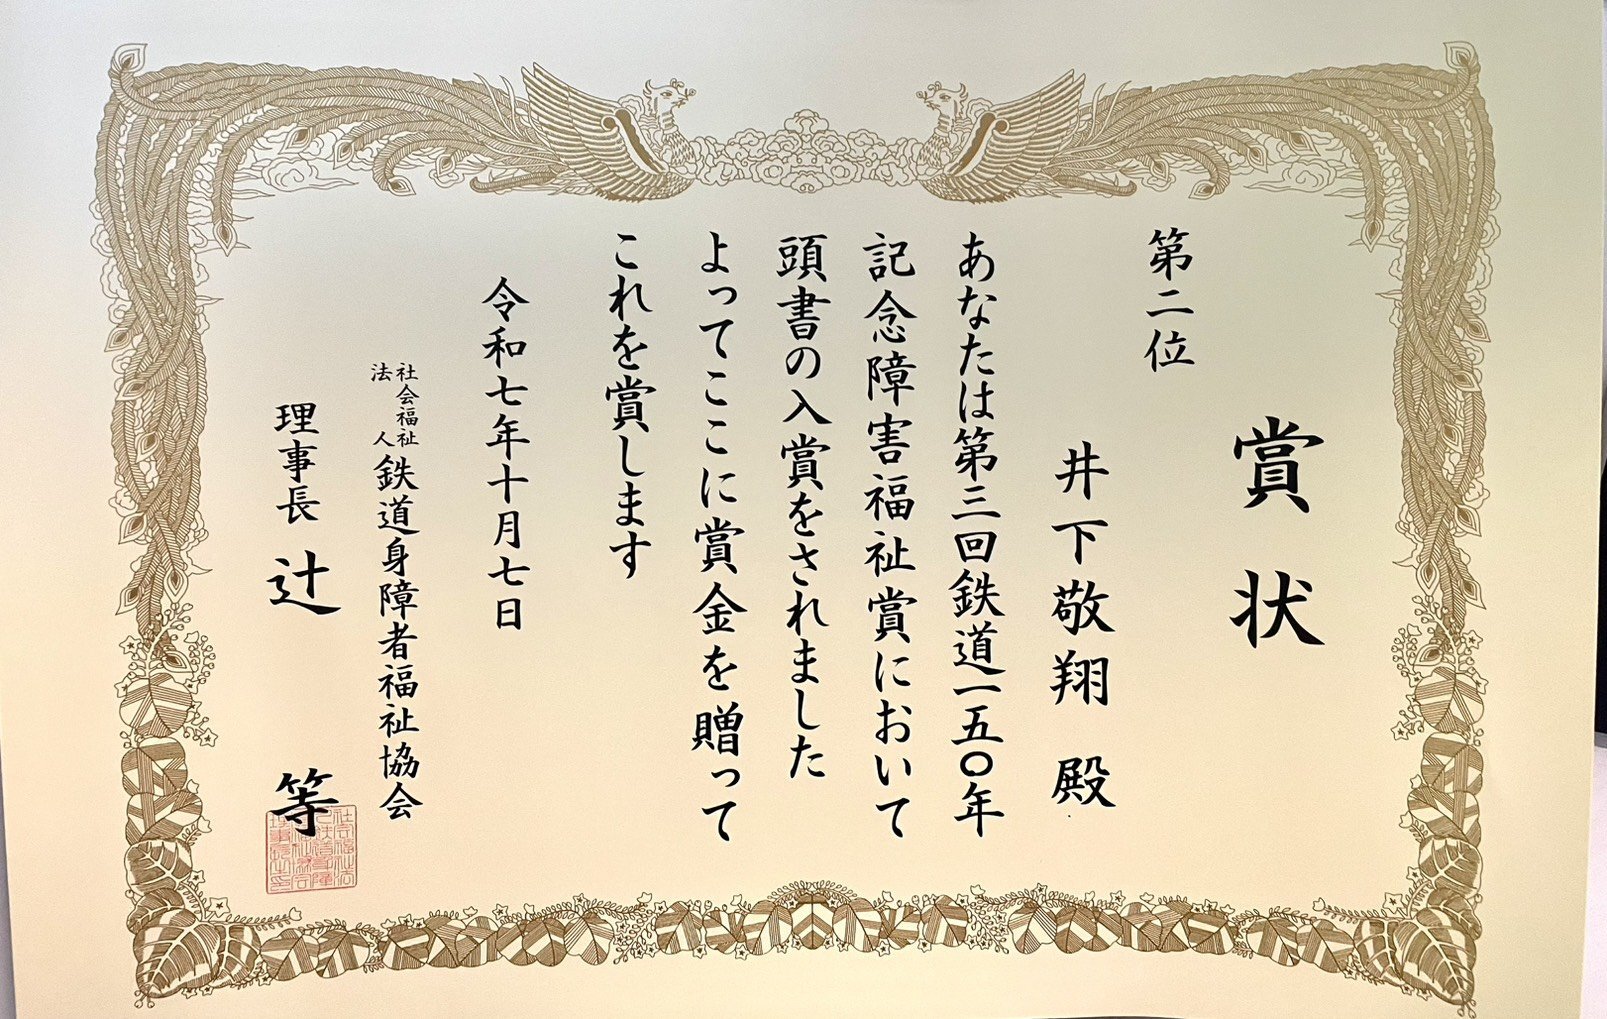 賞状
第二位
井下敬翔 殿
あなたは第三回鉄道一五〇年
記念障害福祉賞において
頭書の入賞をされました
よってここに賞金を贈って
これを賞します
令和七年十月七日
社会福祉法人 鉄道身障者福祉協会
理事長 辻 等